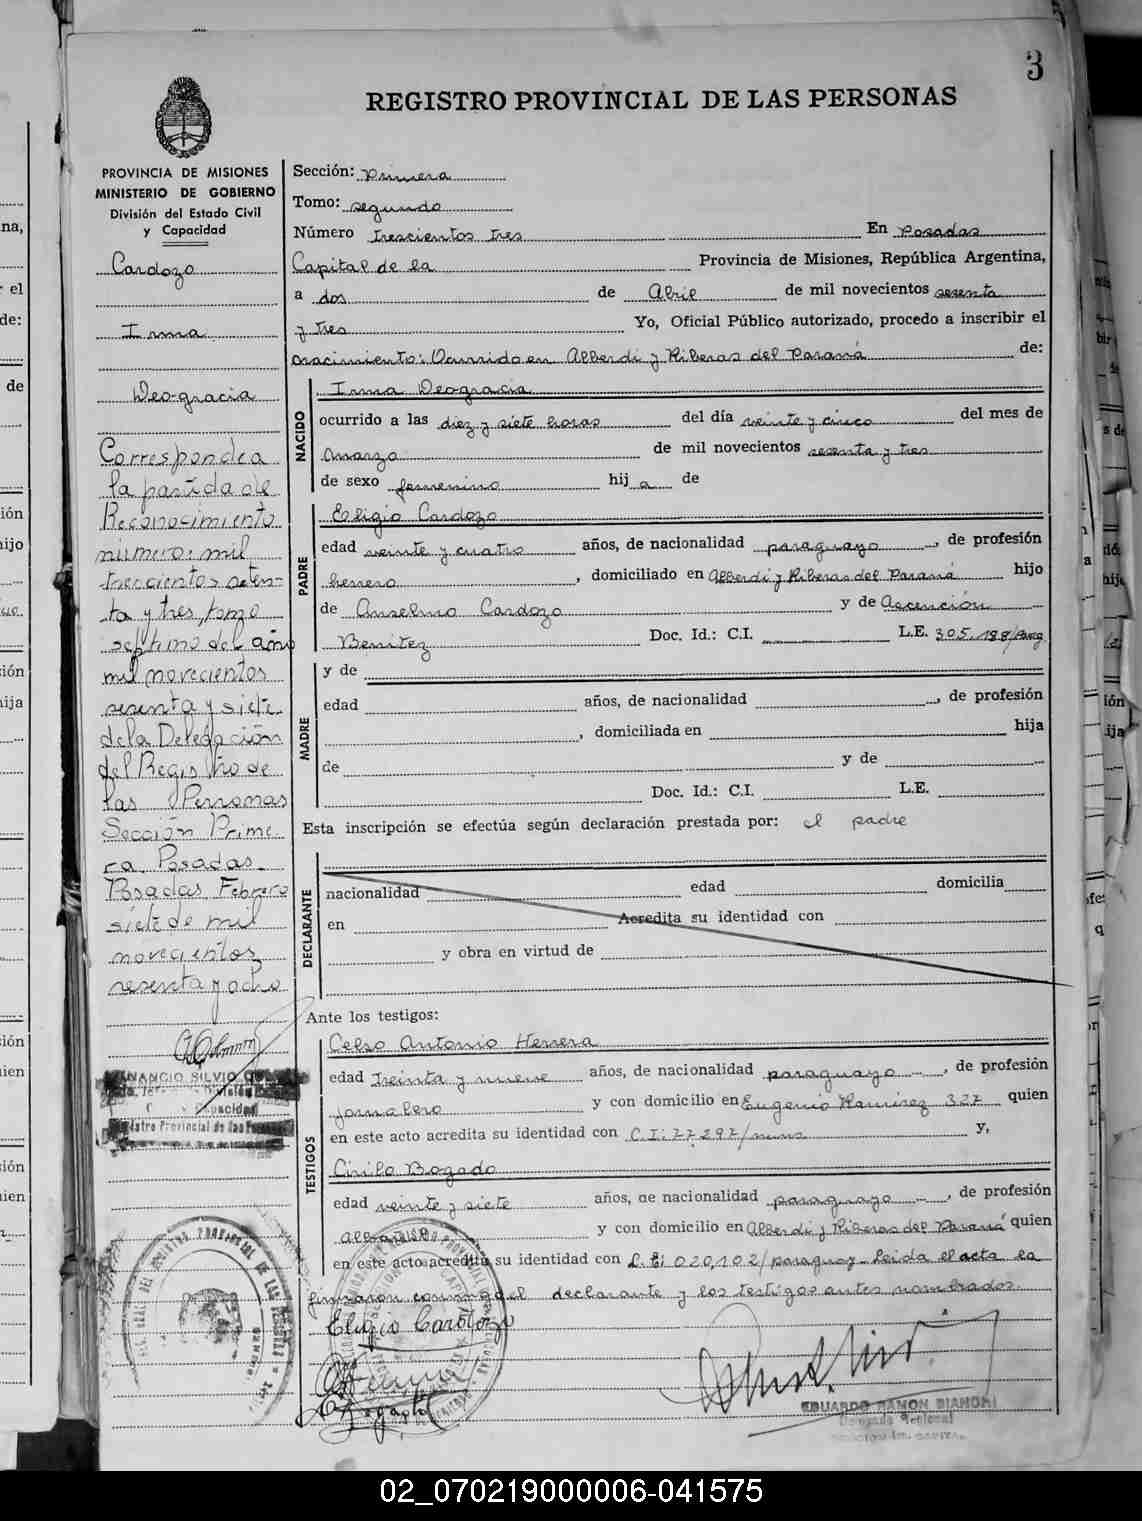 3
REGISTRO PROVINCIAL DE LAS PERSONAS
PROVINCIA DE MISIONES
MINISTERIO DE GOBIERNO
División del Estado Civil
y Capacidad
Cardozo
Irma
Deo-gracia
Corresponde a
la partida de
Reconocimiento
número: mil
trecientos seten-
ta y tres, tomo
septimo del año
mil novecientos
sesenta y siete
de la Delegación
del Registro de
las Personas
Sección Prime
ra. Posadas.
Posadas, Febrero
siete de mil
novecientos
sesenta y ocho
Sección: Primera
Tomo: segundo
Número trescientos tres En Posadas
Capital de la Provincia de Misiones, República Argentina,
a dos de Abril de mil novecientos sesenta
y tres Yo, Oficial Público autorizado, procedo a inscribir el
nacimiento: Ocurrido en Alberdi y Riberas del Paraná de:
NACIDO
Irma Deogracia
ocurrido a las diez y siete horas del día veinte y cinco del mes de
Marzo de mil novecientos sesenta y tres
de sexo femenino hija de
PADRE
Eligio Cardozo
edad veinte y cuatro años, de nacionalidad paraguayo, de profesión
herrero, domiciliado en Alberdi y Riberas del Paraná hijo
de Anselmo Cardozo y de Ascención
Benitez Doc. Id.: C.I. L.E. 305.188/parag
MADRE
y de
edad años, de nacionalidad, de profesión
, domiciliada en hija
de y de
Doc. Id.: C.I. L.E.
Esta inscripción se efectúa según declaración prestada por: el padre
DECLARANTE
nacionalidad edad domicilia
en Acredita su identidad con
y obra en virtud de
Ante los testigos:
TESTIGOS
Celso Antonio Herrera
edad treinta y nueve años, de nacionalidad paraguayo, de profesión
jornalero y con domicilio en Eugenio Ramirez 327 quien
en este acto acredita su identidad con C.I: 77.297/mns y,
Cirilo Bogado
edad veinte y siete años, de nacionalidad paraguayo, de profesión
albañil y con domicilio en Alberdi y Riberas del Paraná quien
en este acto acredita su identidad con L.E: 020,102/paraguay - Leida el acta la
firmaron conmigo el declarante y los testigos antes nombrados.
Eligio Cardozo
EDUARDO RAMON BIANCHI
Delegado Regional
02_070219000006-041575